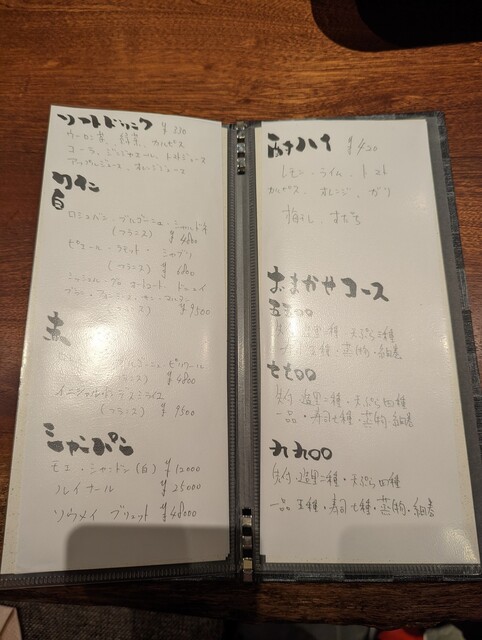 ソフトドリンク ¥330
ウーロン茶、緑茶、カルピス
コーラ、ジンジャエール、トマトジュース
アップルジュース、オレンジジュース
ワイン
白
ロシュバン・ブルゴーニュ・シャルドネ
(フランス) ¥4800
ピエール・ シャブリ
(フランス) ¥
ミッシェル・
フランス) ¥9500
赤
¥4800
(フランス) ¥9500
シャンパン
モエ・シャンドン(白) ¥12000
ルイナール ¥25000
ソウメイ ブリュット ¥48000
酎ハイ ¥420
レモン・ライム・トマト
カルピス、オレンジ、ガリ
梅干し、すだち
おまかせコース
五五〇〇
先付・造里二種・天ぷら三種
一品 ・蒸物・細巻
七七〇〇
先付・造里二種・天ぷら四種
一品・寿司七種・蒸物・細巻
九九〇〇
先付・造里二種・天ぷら四種
一品五種・寿司七種・蒸物・細巻